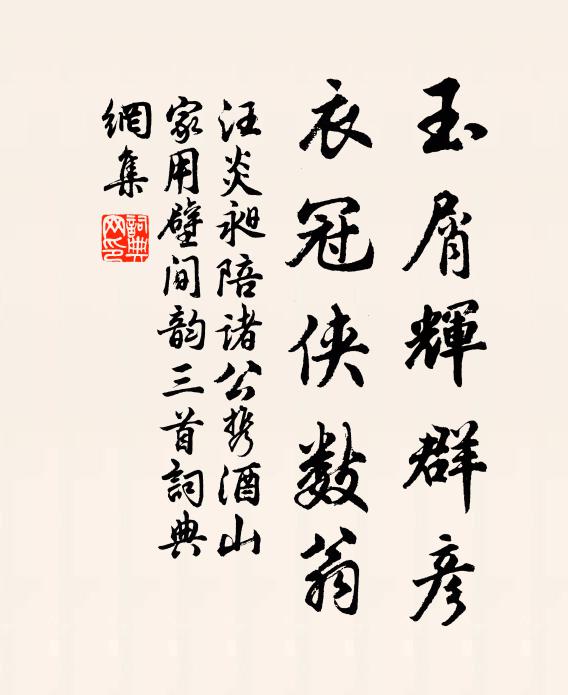 玉屑輝群彦
衣冠侠數翁
汪炎昶陪诸公携酒山
家用壁间韵三首詞典
網集
詞典
网印